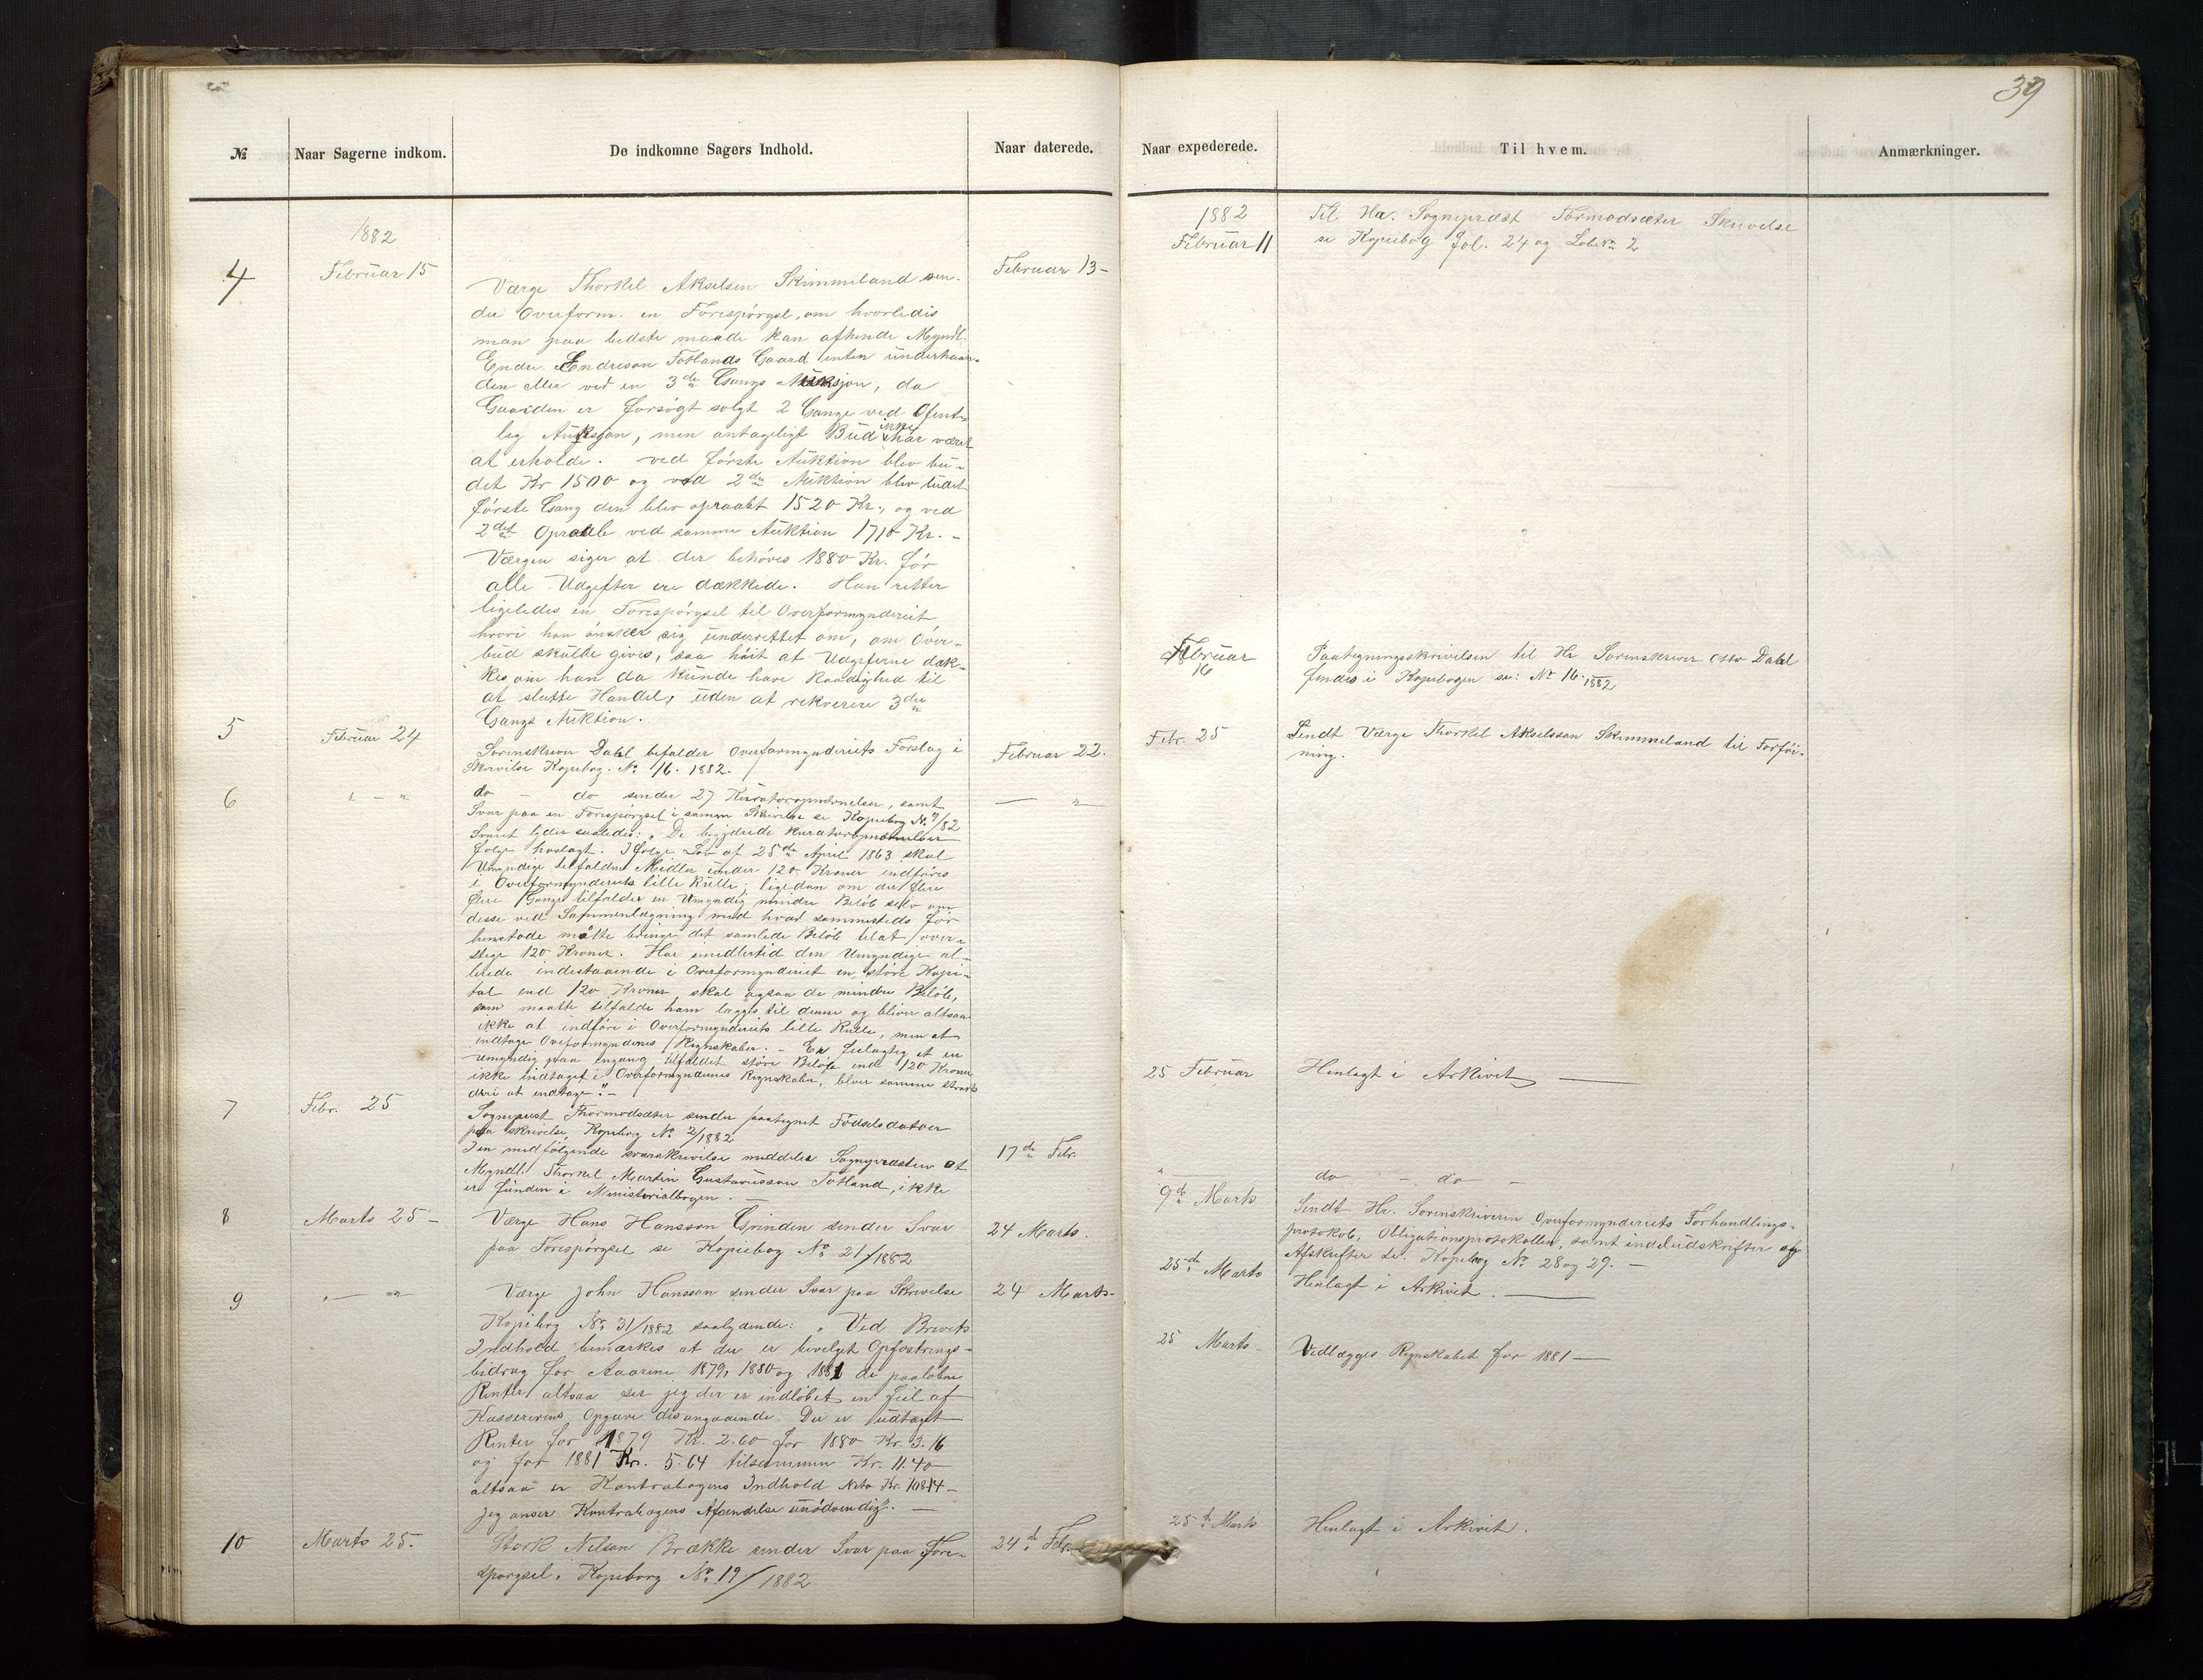 39
№
Naar Sagerne indkom.
De indkomne Sagers Indhold.
Naar daterede.
1882
4
Februar 15
Februar 13-
Værge Thorkel Akselsen Skimmeland sen-
der Overform. en Forespørgsel, om hvorledis
man paa bedste maade kan afhende Myndl.
Endre Endreson Totlands Gaard enten underhaan-
den eller ved en 3de Gangs Auksjon, da
Gaarden er forsøgt solgt 2 Gange ved Ofent-
lig Auksjon, men antageligt Bud ikke har været
at erholde. ved første Auktion blev bu-
det Kr 1500 og ved 2den Auktion blev budet
første Gang den blev opraabt 1520 Kr., og ved
2det Opraab ved samme Auktion 1710 Kr. -
Værgen siger at der behøves 1880 Kr. før
alle Udgifter ere dækkede. Han retter
ligeledes en Forespørgsel til Overformynderiet
hvori han ønsker sig underrettet om, om Over-
bud skulde gives, saa høit at Udgifterne dæk-
kes om han da kunde have Raadighed til
at slutte Handel, uden at rekvirere 3die
Gangs Auktion.
5
Februar 24
Sorenskriver Dahl befalder Overformynderiets Forslag i
Skrivelse Kopibog. No 16. 1882.
Februar 22.
6
" - "
do - do sender 27 Kuratoropnævnelser, samt
Svar paa en Forespørgsel i samme Skrivelse se Kopiebog No 7/82
Svaret lyder saaledes: "De begjærede Kuratoropnævnelser
følge hoslagt. Ifølge Lov af 25de April 1863 skal
Umyndige tilfaldne Midler under 120 Kroner indføres
i Overformynderiets lille Rulle; ligedan om der flere
flere Gange tilfalder en Umyndig mindre Beløb selv om
desse ved Sammenlægning med hvad sammesteds før
henstode måtte bringe det samlede Beløb til at over-
stige 120 Kroner. Har imidlertid den Umyndige al-
lerede indestaaende i Overformynderiet en større Kapi-
tal end 120 Kroner skal ogsaa de mindre Beløb,
som maatte tilfalde ham lægges til denne og bliver altsaa
ikke at indføre i Overformynderiets lille Rulle, men at
indtage Overformynderiets Regnskaber. - Er feilagtig et en
umyndig paa engang tilfaldet større Beløb end 120 Kroner
ikke indtaget i Overformynderiets Regnskaber, bliver samme strax
deri at indtage". -
— "
7
Febr. 25
Sogneprest Thormodsæter sender paategnet Fødselsdatoer
paa skrivelse, Kopibog No 2/1882
I en medfølgende svarskrivelse meddeler Sognepræsten at
Myndl. Thorkel Martin Gustavusson Totland, ikke
er funden i Ministerialbogen. —
17de Febr.
8
Marts 25 -
Værge Hans Hansson Grinden sender Svar
paa Forespørgsel se Kopiebog No 21/1882
24 Marts.
9
" — "
Værge John Hansson sender Svar paa Skrivelse
Kopibog No 31/1882 saalydende: "Ved Brevets
Indhold bemærkes at der er bevilget Opfostrings-
bidrag for Aarene 1879, 1880 og 1881 de paaløbne
Renter altsaa ser jeg der er indløbet en feil af
Kassererens Opgave desangaaende. Der er udtaget
Renter for 1879 Kr. 2.60 for 1880 Kr. 3.16
og for 1881 Kr. 5.64 tilsammen Kr. 11.40
altsaa er Kontrabogens Indhold Kr. 108.14 -
Jeg anser Kontrabogens Afsendelse unødvendig". —
24 Marts-
10
Marts 25.
Stork Nilson Brække sender Svar paa Fore-
spørgsel. Kopiborg No. 19/1882
24d. Febr.
Naar expederede.
Til hvem.
Anmærkninger.
1882
Februar 11
Til Hr. Sogneprest Tormodsæter Skrivelse
se Kopiebog fol. 24 og Løbeno 2
Februar
16
Paategningsskrivelsen til Hr Sorenskriver Otto Dahl
findes i Kopibogen se: No 16. 1882
Febr. 25
Sendt Værge Thorkel Akselsson Skimmeland til Forføi-
ning.
25 Februar
Henlagt i Arkivet —
"
do - do -
9de Marts
Sendt Hr. Sorenskriveren Overformynderiets Forhandlings-
protokol, Obligationsprotokollen, samt indeludskrifter og
Afskrifter se. Kopibog No 28 og 29. -
25de Marts
Henlagt i Arkivet. —
25 Marts -
Vedlægges Regnskabet for 1881 —
25d. Marts
Henlagt i Arkivet.